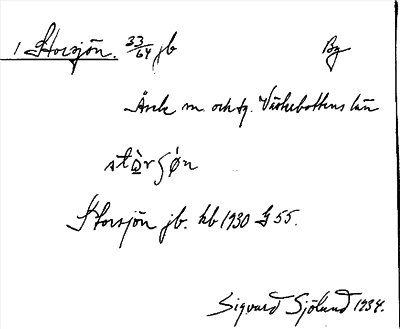 1 Storsjön. 33/64 jb By
Åsele sn. och tg. Västerbottens län
stòrʃǿn
Storsjön jb. kb 1930 G 55.
Sigvard Sjölund 1934.